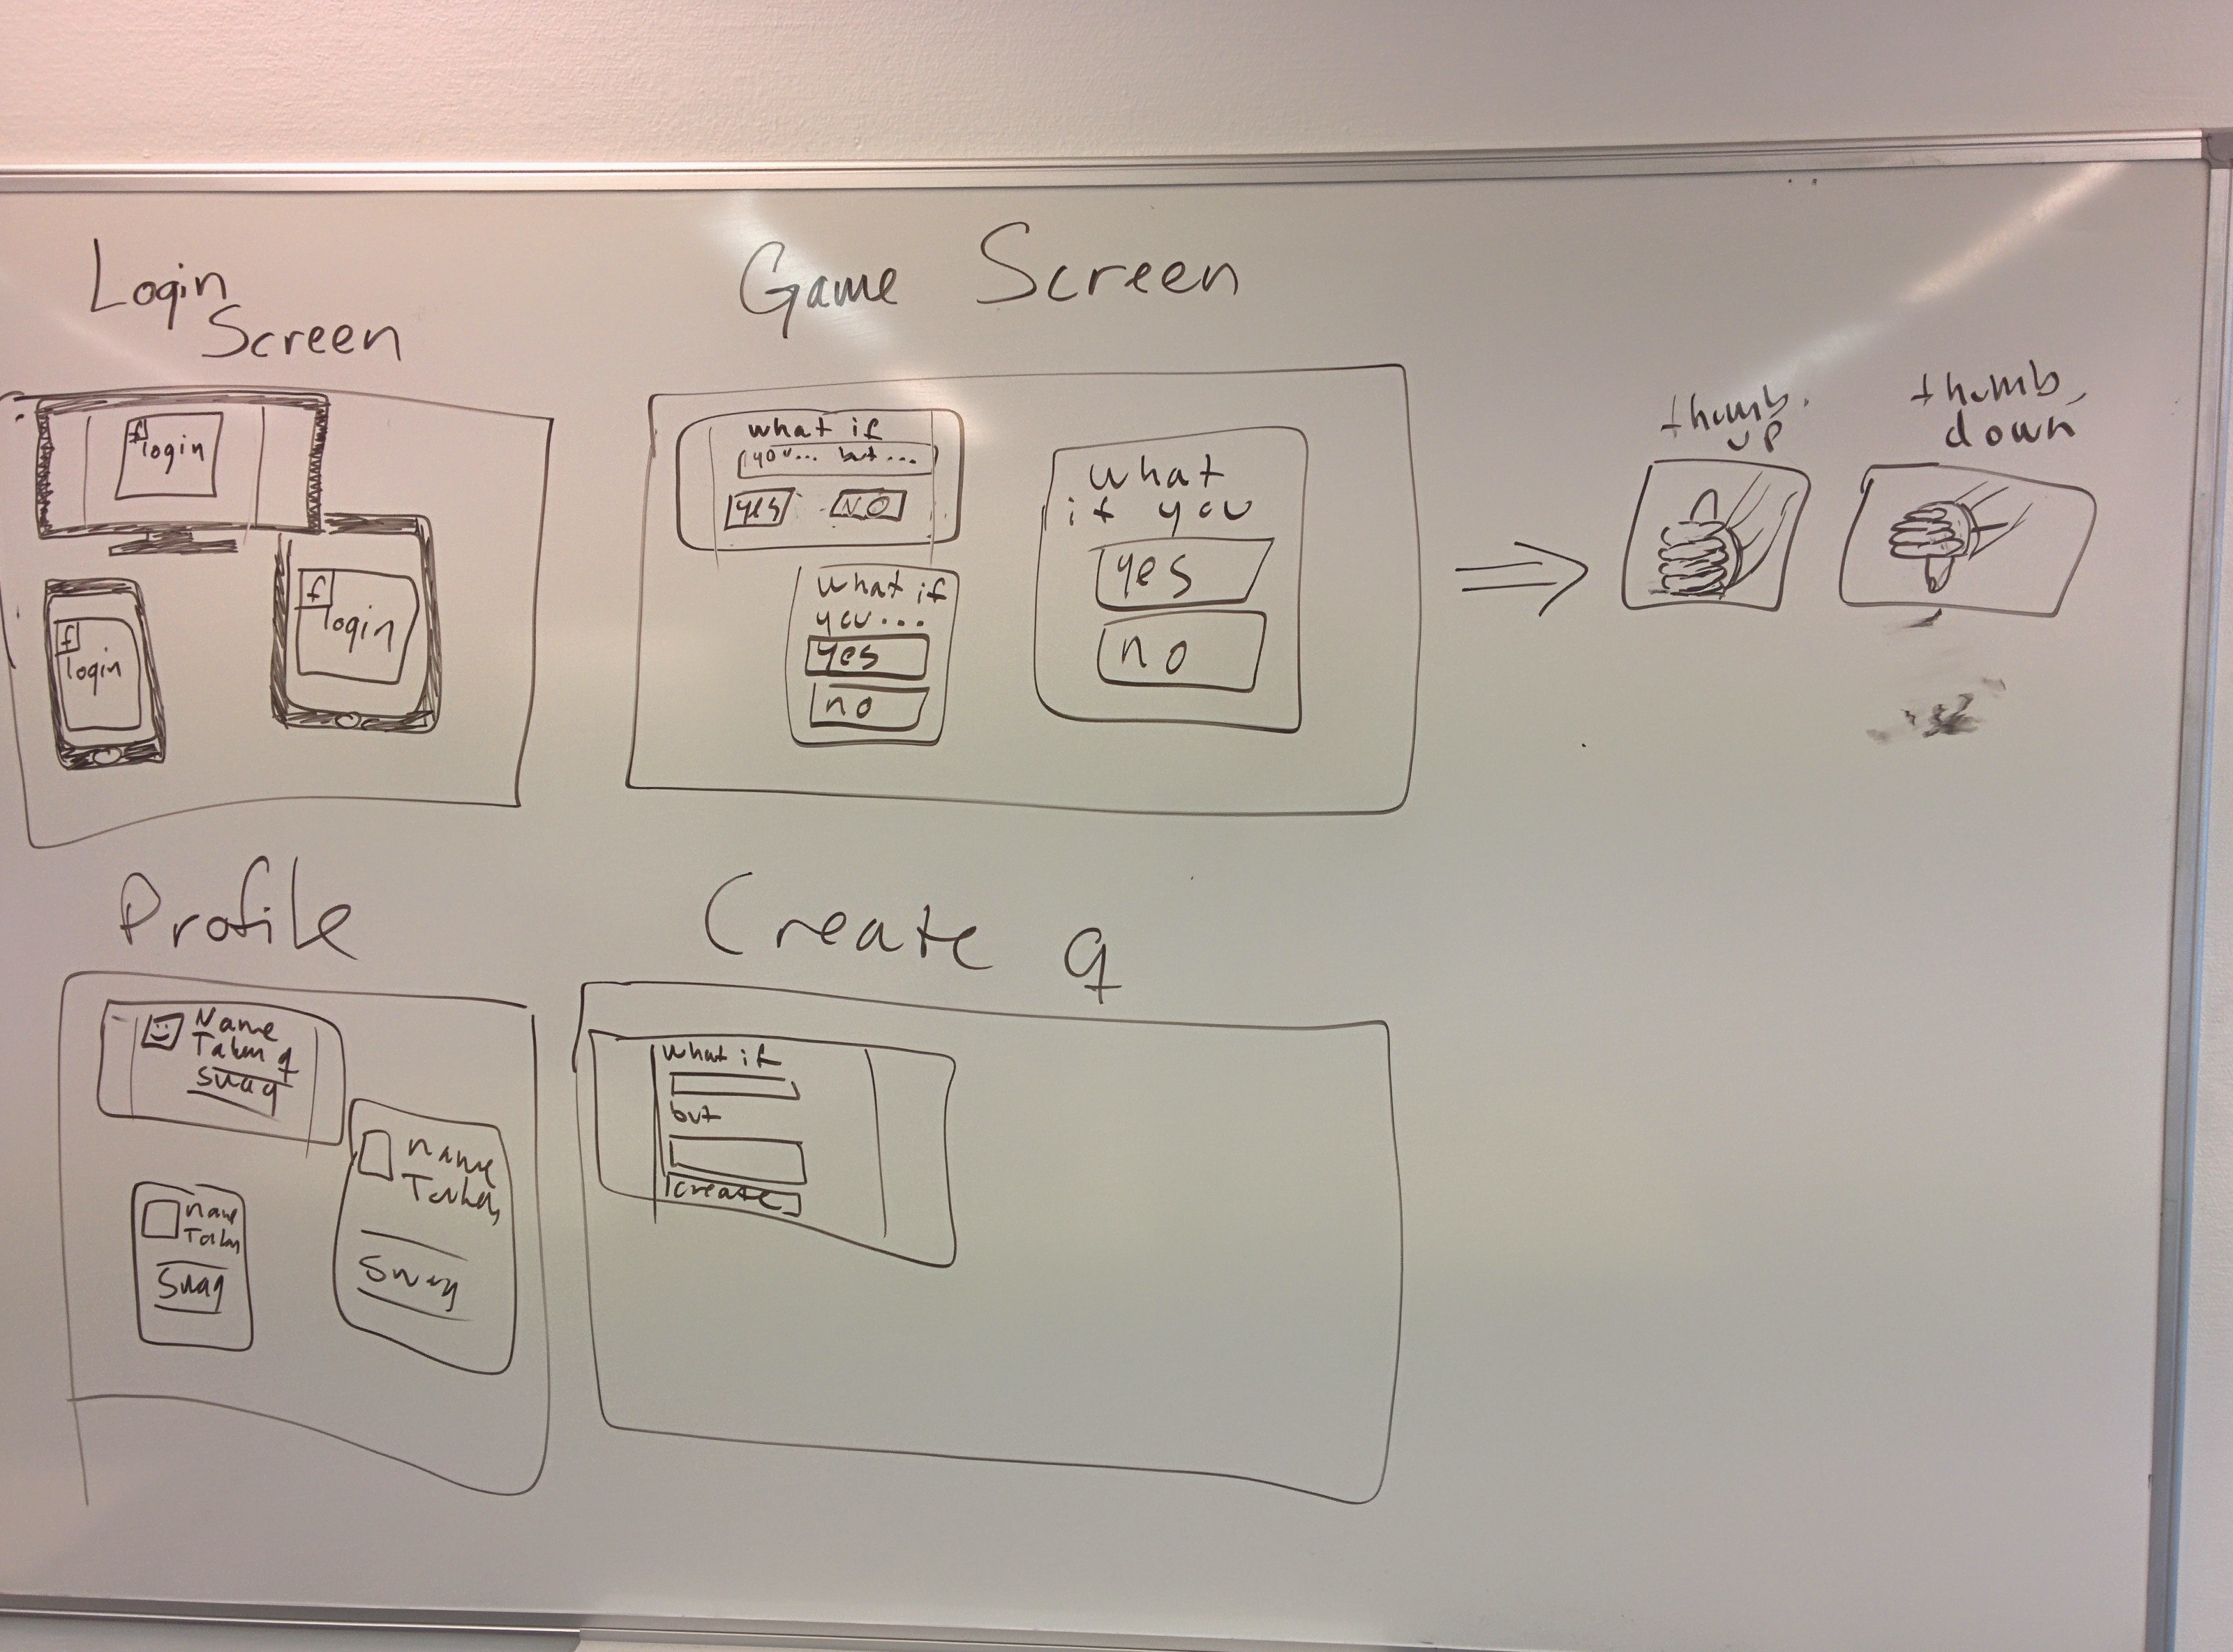 Login
Screen
f
login
f
login
f
login
Game Screen
what if
you... but...
yes NO
what if
you...
yes
no
what
if you
yes
no
thumb
up
thumb
down
Profile
Name
q
swag
name
swag
name
swag
Create q
what if
but
create